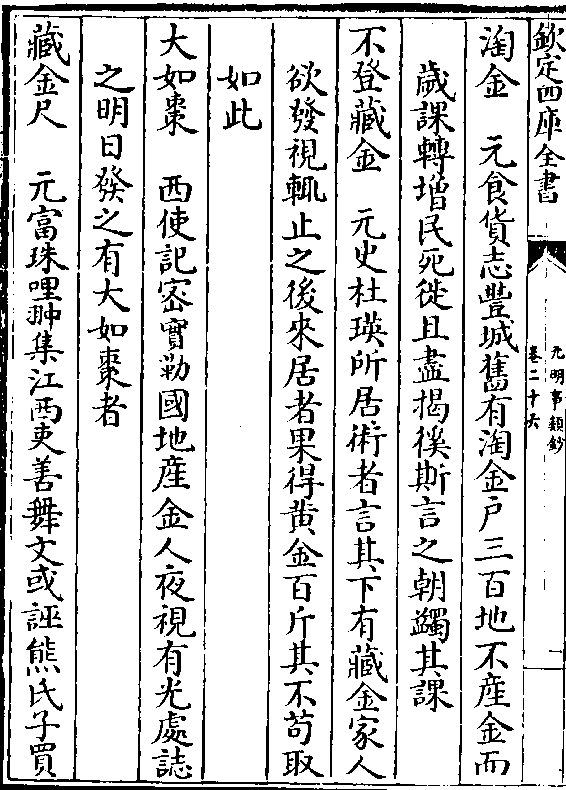 欽定四庫全書
元明事類鈔
卷二十六
二
淘金　元食貨志豐城舊有淘金戶三百地不産金而
歲課轉增民死徙且盡揭徯斯言之朝蠲其課
不登藏金　元史杜瑛所居術者言其下有藏金家人
欲發視輒止之後來居者果得黄金百斤其不茍取
如此
大如棗　西使記宻實勒國地産金人夜視有光處誌
之明日發之有大如棗者
藏金尺　元富珠哩翀集江西吏善舞文或誣熊氏子買